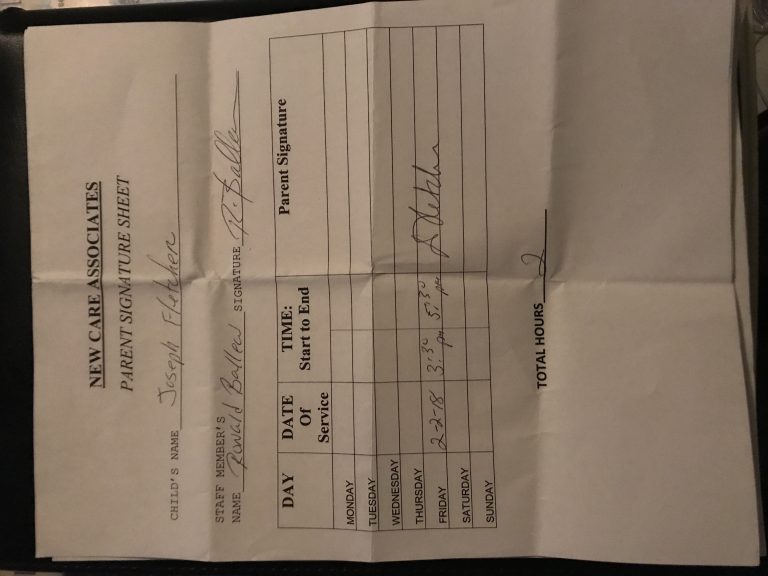 NEW CARE ASSOCIATES
PARENT SIGNATURE SHEET
CHILD'S NAME Joseph Fletcher
STAFF MEMBER'S
NAME Ronald Ballew SIGNATURE R. Ballew
DAY DATE Of Service TIME: Start to End Parent Signature
MONDAY
TUESDAY
WEDNESDAY
THURSDAY
FRIDAY 2-2-18 3:30 pm 5:30 pm
SATURDAY
SUNDAY
TOTAL HOURS 2